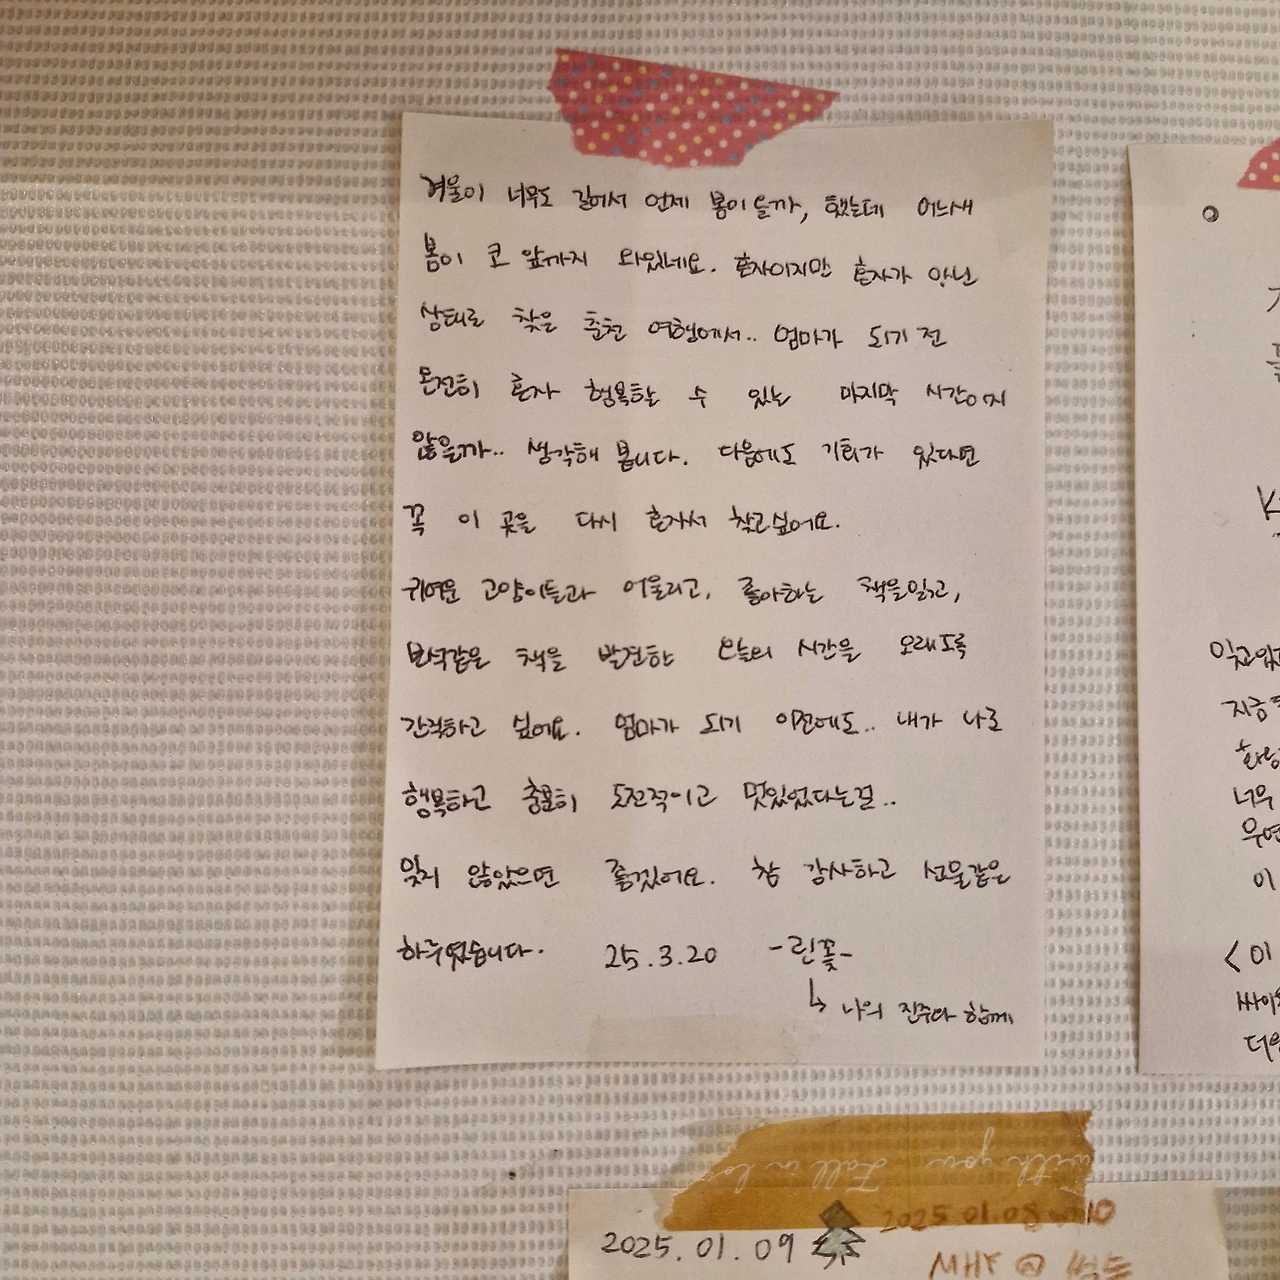 겨울이 너무도 길어서 언제 봄이 올까, 했는데 어느새
봄이 코 앞까지 와있네요. 혼자이지만 혼자가 아닌
상태로 찾은 춘천 여행에서.. 엄마가 되기 전
온전히 혼자 행복할 수 있는 마지막 시간이지
않을까.. 생각해 봅니다. 다음에도 기회가 있다면
꼭 이 곳을 다시 혼자서 찾고싶어요.
귀여운 고양이들과 어울리고, 좋아하는 책을읽고,
보석같은 책을 발견한 오늘의 시간을 오래도록
간직하고 싶어요. 엄마가 되기 이전에도.. 내가 나로
행복하고 충분히 도전적이고 멋있었다는걸..
잊지 않았으면 좋겠어요. 참 감사하고 선물같은
하루였습니다. 25.3.20 -린꽃-
↳ 나의 진주와 함께
with you Fall in lo
2025.01.09
2025.01.08 10
MHY @
지금
너무
우연
이
<이